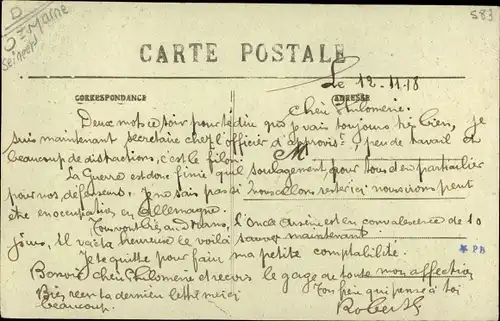 D
Ste Marne
583
CARTE POSTALE
Le 12-11-18
CORRESPONDANCE
ADRESSE
Chère Philomène.
Deux mots ce soir pour te dire que je vais toujours très bien, je
suis maintenant secrétaire chez l'officier d'approvist peu de travail et
beaucoup de distractions, c'est le filon.
M
La Guerre est donc finie quel soulagement pour tous et en particulier
pour nos défenseurs. Je ne sais pas si nous allons rester ici nous irons peut
être en occupation en Allemagne.
l'Oncle en convalescence de 10
jours, Il va à ta le voilà sauvé maintenant
* PB
Je te quitte pour faire ma petite comptabilité.
Bonsoir chère Philomène et reçois le gage de toute mon affection
Bien reçu ta dernière lettre merci
beaucoup.
Ton frère qui pense à toi
Robert